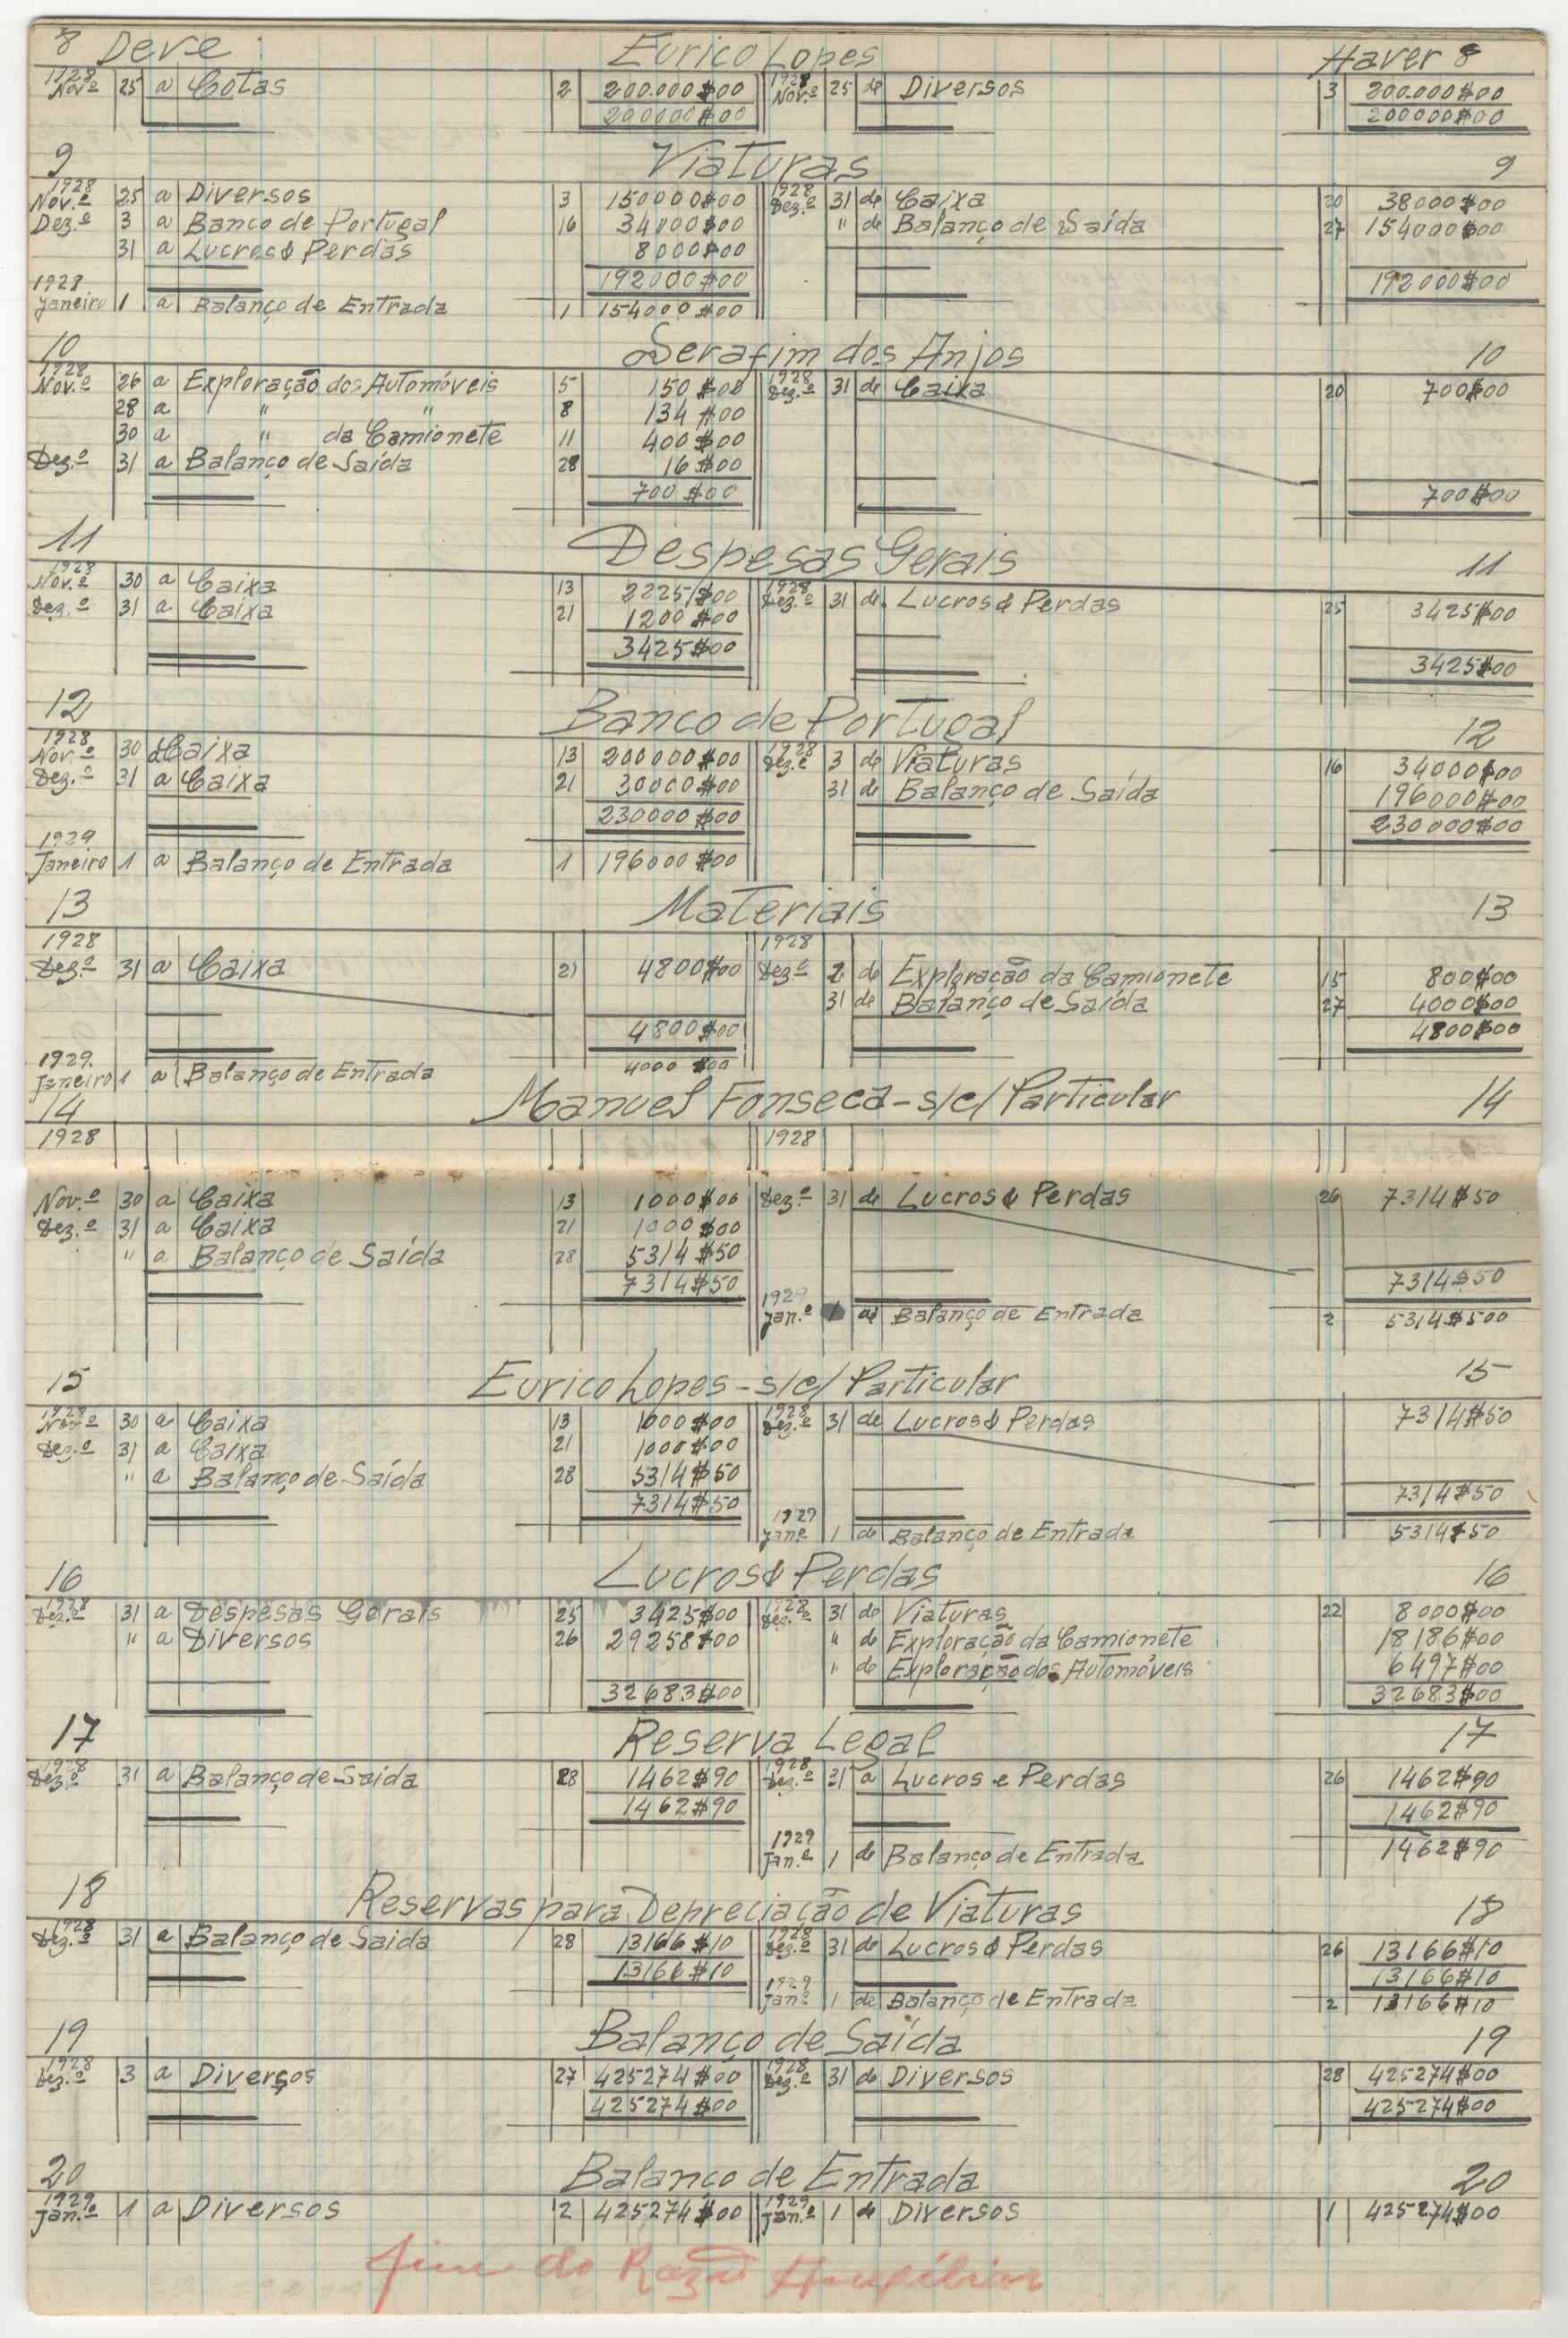 8 Deve Eurico Lopes Haver 8
1928 1928
Nov.º 25 a Cotas 2 200.000$00 Nov.º 25 de Diversos 3 200.000$00
200000$00 200000$00
9 Viaturas 9
1928 1928
Nov.º 25 a Diversos 3 150000$00 Dez.º 31 de Caixa 20 38000$00
Dez.º 3 a Banco de Portugal 16 34000$00 " de Balanço de Saída 27 154000$00
31 a Lucros & Perdas 8000$00
192000$00 192000$00
1928
Janeiro 1 a Balanço de Entrada 1 154000$00
10 Serafim dos Anjos 10
1928 1928
Nov.º 26 a Exploração dos Automóveis 5 150$00 Dez.º 31 de Caixa 20 700$00
28 a " " 8 134$00
30 a " da Camionete 11 400$00
Dez.º 31 a Balanço de Saída 28 16$00
700$00 700$00
11 Despesas Gerais 11
1928 1928
Nov.º 30 a Caixa 13 2225$00 Dez.º 31 de Lucros & Perdas 25 3425$00
Dez.º 31 a Caixa 21 1200$00
3425$00 3425$00
12 Banco de Portugal 12
1928 1928
Nov.º 30 a Caixa 13 200000$00 Dez.º 3 de Viaturas 16 34000$00
Dez.º 31 a Caixa 21 30000$00 31 de Balanço de Saída 196000$00
230000$00 230000$00
1929
Janeiro 1 a Balanço de Entrada 1 196000$00
13 Materiais 13
1928 1928
Dez.º 31 a Caixa 21 4800$00 Dez.º 2 de Exploração da Camionete 15 800$00
31 de Balanço de Saída 27 4000$00
4800$00 4800$00
1929.
Janeiro 1 a Balanço de Entrada 4000$00
14 Manuel Fonseca - s/c/ Particular 14
1928 1928
Nov.º 30 a Caixa 13 1000$00 Dez.º 31 de Lucros & Perdas 26 7314$50
Dez.º 31 a Caixa 21 1000$00
" a Balanço de Saída 28 5314$50
7314$50 7314$50
1929
Jan.º 1 de Balanço de Entrada 2 5314$500
15 Eurico Lopes - s/c/ Particular 15
1928 1928
Nov.º 30 a Caixa 13 1000$00 Dez.º 31 de Lucros & Perdas 7314$50
Dez.º 31 a Caixa 21 1000$00
" a Balanço de Saída 28 5314$50
7314$50 7314$50
1929
Jan.º 1 de Balanço de Entrada 5314$50
16 Lucros & Perdas 16
1928 1928
Dez.º 31 a Despesas Gerais 25 3425$00 Dez.º 31 de Viaturas 22 8000$00
" a Diversos 26 29258$00 " de Exploração da Camionete 18186$00
" de Exploração dos Automóveis 6497$00
32683$00 32683$00
17 Reserva Legal 17
1928 1928
Dez.º 31 a Balanço de Saida 28 1462$90 Dez.º 31 a Lucros e Perdas 26 1462$90
1462$90 1462$90
1929
Jan.º 1 de Balanço de Entrada 1462$90
18 Reservas para Depreciação de Viaturas 18
1928 1928
Dez.º 31 a Balanço de Saida 28 13166$10 Dez.º 31 de Lucros & Perdas 26 13166$10
13166$10 13166$10
1929
Janº 1 de Balanço de Entrada 2 13166$10
19 Balanço de Saída 19
1928 1928
Dez.º 3 a Diversos 27 425274$00 Dez.º 31 de Diversos 28 425274$00
425274$00 425274$00
20 Balanço de Entrada 20
1929 1929
Jan.º 1 a Diversos 2 425274$00 Jan.º 1 de Diversos 1 425274$00
Fim do Razão Auxiliar